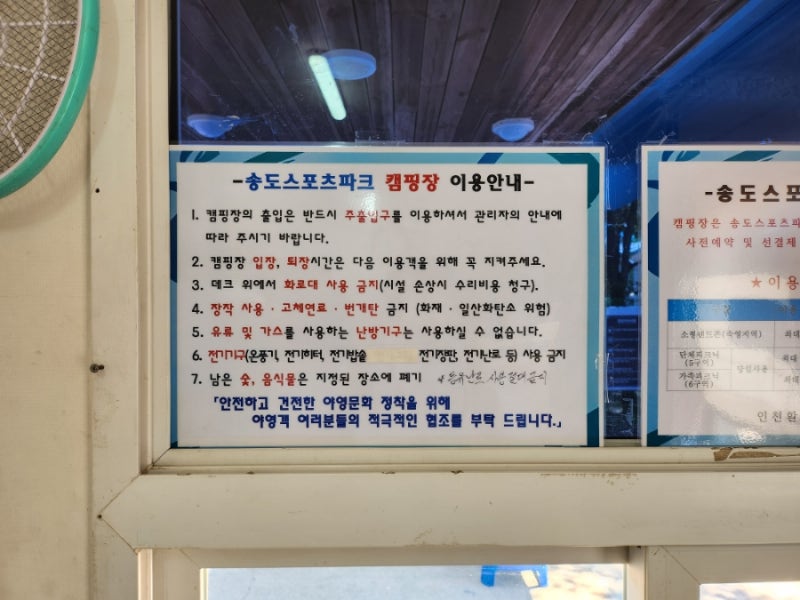 -송도스포츠파크 캠핑장 이용안내-
1. 캠핑장의 출입은 반드시 주출입구를 이용하셔서 관리자의 안내에
따라 주시기 바랍니다.
2. 캠핑장 입장, 퇴장시간은 다음 이용객을 위해 꼭 지켜주세요.
3. 데크 위에서 화로대 사용 금지(시설 손상시 수리비용 청구).
4. 장작 사용 · 고체연료 · 번개탄 금지 (화재 · 일산화탄소 위험)
5. 유류 및 가스를 사용하는 난방기구는 사용하실 수 없습니다.
6. 전기기구(온풍기, 전기히터, 전기밥솥 전기장판, 전기난로 등) 사용 금지
7. 남은 숯, 음식물은 지정된 장소에 폐기
「안전하고 건전한 야영문화 정착을 위해
야영객 여러분들의 적극적인 협조를 부탁 드립니다.」
-송도스포
캠핑장은 송도스포츠파
사전예약 및 선결제
★이용
최대
단체피크닉
(5구역)
당일사용
최대
가족피크닉
(6구역)
최대
인천환